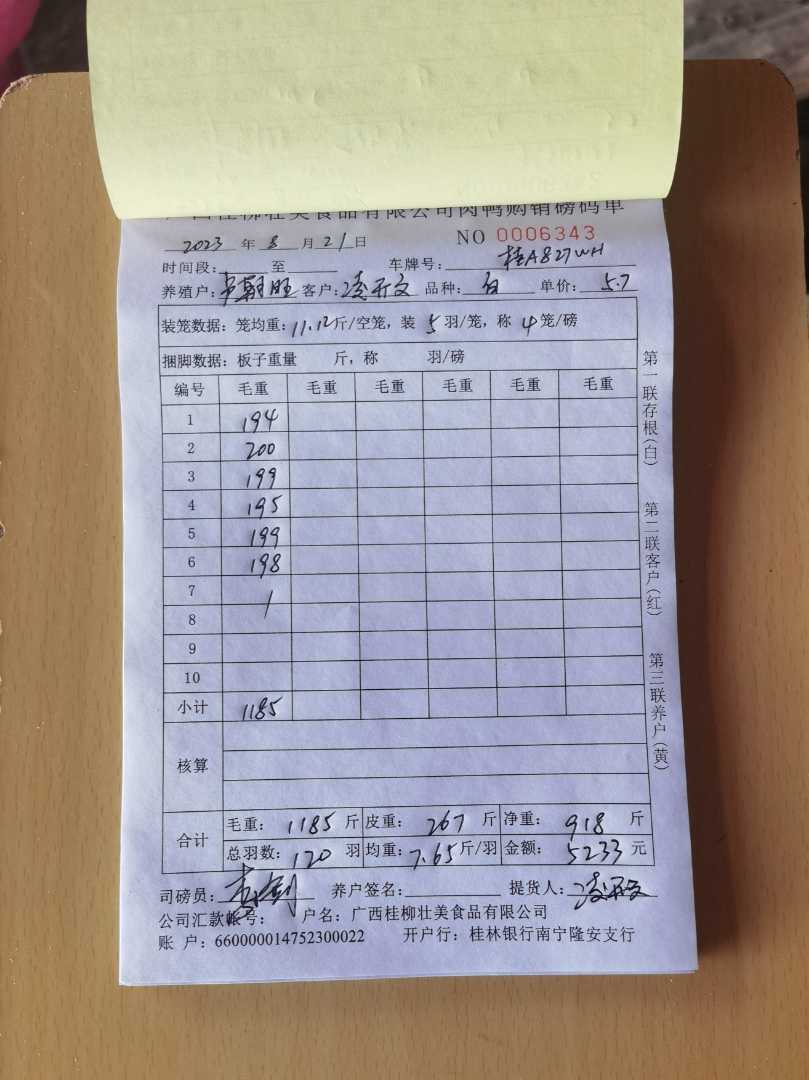 广西桂柳壮美食品有限公司肉鸭购销磅码单
2023 年 8 月 21 日 NO 0006343
时间段: 至 车牌号: 桂A827WH
养殖户: 卢朝旺 客户: 凌开文 品种: 白 单价: 5.7
装笼数据: 笼均重: 11.12斤/空笼, 装 5 羽/笼, 称 4 笼/磅
捆脚数据: 板子重量 斤, 称 羽/磅
编号 毛重 毛重 毛重 毛重 毛重 毛重
1 194
2 200
3 199
4 195
5 199
6 198
7
8
9
10
小计 1185
核算
合计 毛重: 1185 斤 皮重: 267 斤 净重: 918 斤
总羽数: 120 羽 均重: 7.65斤/羽 金额: 5233 元
司磅员: 养户签名: 提货人: 凌开文
公司汇款帐号: 户名: 广西桂柳壮美食品有限公司
账 户: 660000014752300022 开户行: 桂林银行南宁隆安支行
第一联存根(白)
第二联客户(红)
第三联养户(黄)